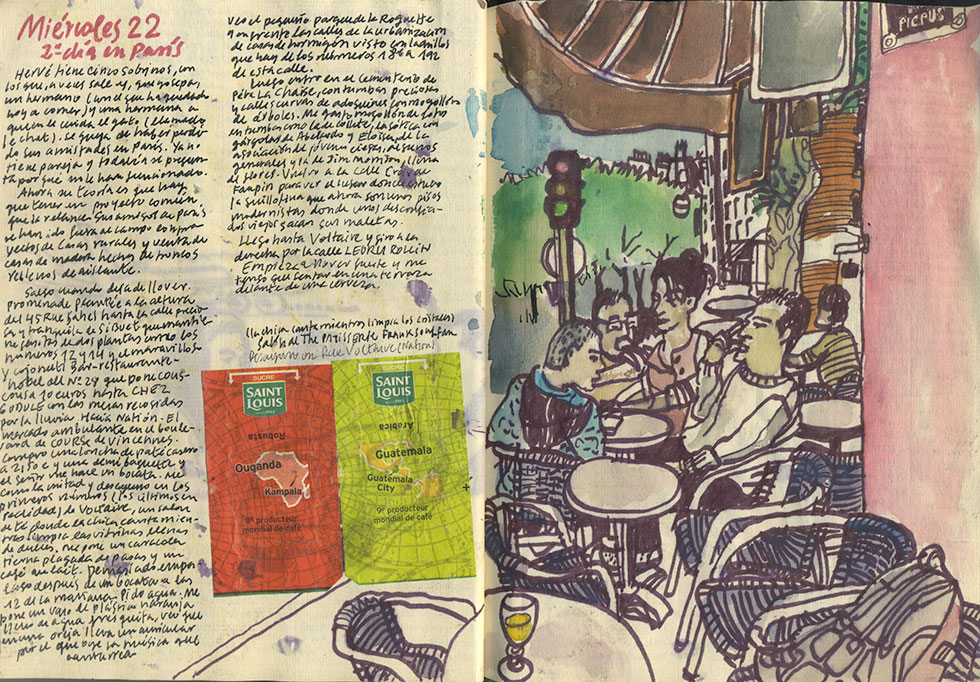 Miércoles 22
2º día en París
Hervé tiene cinco sobinos, con
los que, a veces sale
un hermano (con el que ha quedado
hoy a comer) y una hermana a
quien le cuida el gato (el llamado
le chat). Se queja de haber perdi-
do sus amistades en París. Ya no
tiene pareja y todavía se pregun-
ta por qué no le han funcionado.
Ahora su teoría es que hay
que tener un proyecto común,
que la relance. Sus amigos de París
se han ido fuera al campo
casas rurales y venta de
casas de madera hechas de troncos
rellenos de aislante.
Salgo cuando deja de llover.
promenade plantée a la altura
del 45 Rue Sahel hasta la calle
y tranquila de
de dos plantas entre los
números 12 y 14 y el maravilloso
y bar-restaurante-
hotel del Nº 29 que pone cous-
cous a 10 euros hasta CHEZ
GUDULE con las mesas recogidas
por la lluvia. Hacia Nation. El
mercado ambulante en el boule-
vard de COURS de Vincennes.
Compro una loncha de paté casero
a 2,50 € y una demi baguette y
el señor me hace un bocata. Me
como la mitad y desayuno en los
primeros números (los últimos en
realidad) de Voltaire, un salon
de té donde la chica canta mien-
tras limpia las vitrinas llenas
de dulces, me pone un caracol
tierno plagado de pasas y un
café au lait. Demasiado empa-
lago después de un bocata a las
12 de la mañana. Pido agua. Me
pone un vaso de plástico naranja
lleno de agua fresquita, veo que
en una oreja lleva un auricular
por el que oye la música que
canturrea
Veo el pequeño parque de la Roquette
y enfrente las calles de la urbanización
de casas de hormigón visto con ladrillos
que hay de los números 188 a 192
de esta calle.
Luego entro en el Cementerio de
Père La Chaise, con tumbas preciosas
y calles curvas de adoquines con mogollón
de árboles. Me gasto mogollón de foto
en tumbas como la de Collete, la gótica con
gárgolas de Abelardo y Eloísa, de la
asociación de jóvenes ciegos, algunos
generales y la de Jim Morrison llena
de flores. Vuelvo a la calle Croix
Faubin para ver el lugar donde estuvo
la guillotina que ahora son unos pisos
modernistas donde unos
viejos sacan sus maletas.
Llego hasta Voltaire y giro a la
derecha por la calle LEDRU ROLLIN
Empieza a llover fuerte y me
tengo que sentar en una terraza
delante de una cerveza.
(la chica canta mientras limpia los cristales)
Salón de Thé Patisserie
Rue Voltaire (Nation)
SUCRE
SAINT
LOUIS
Robusta
Ouganda
Kampala
8e producteur
mondial de café
SUCRE
SAINT
LOUIS
Arabica
Guatemala
Guatémala
City
9e producteur
mondial de café
PICPUS